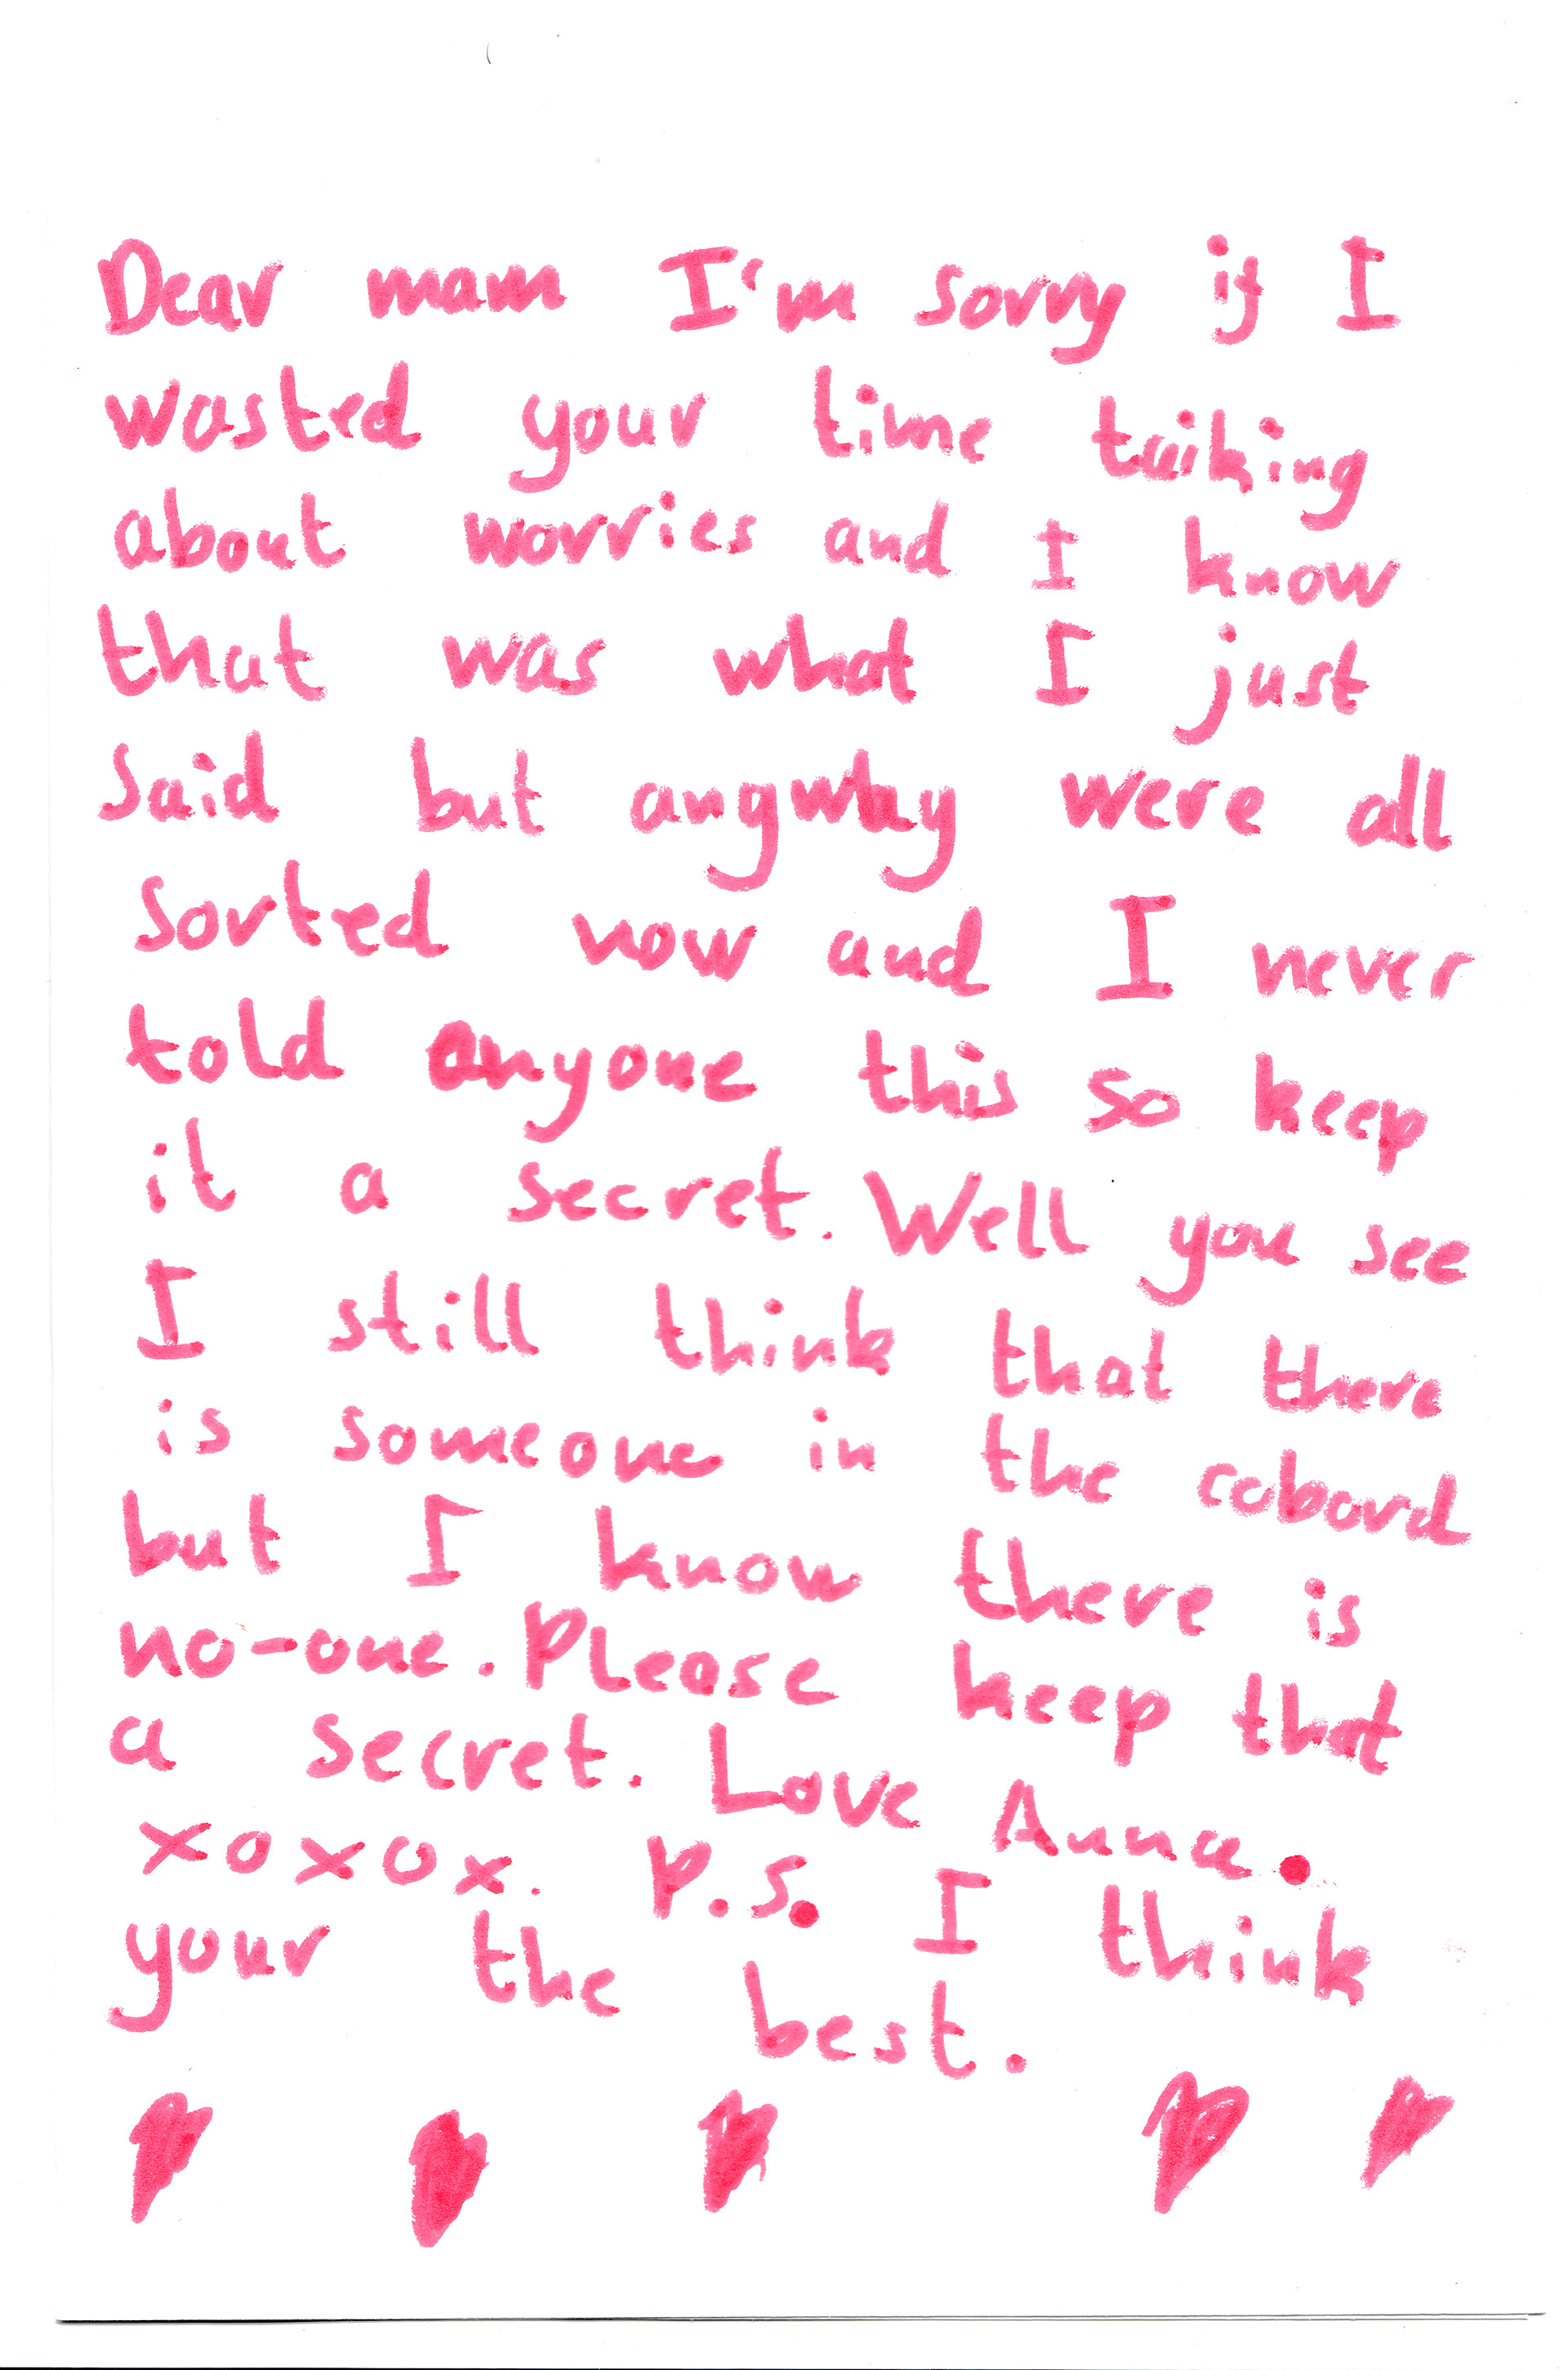 Dear mam I'm sorry if I
wasted your time taiking
about worries and I know
that was what I just
said but angwhy were all
sorted now and I never
told anyone this so keep
it a secret. Well you see
I still think that there
is someone in the cobord
but I know there is
no-one. Please keep that
a secret. Love Anna.
xoxox. P.S. I think
your the best.